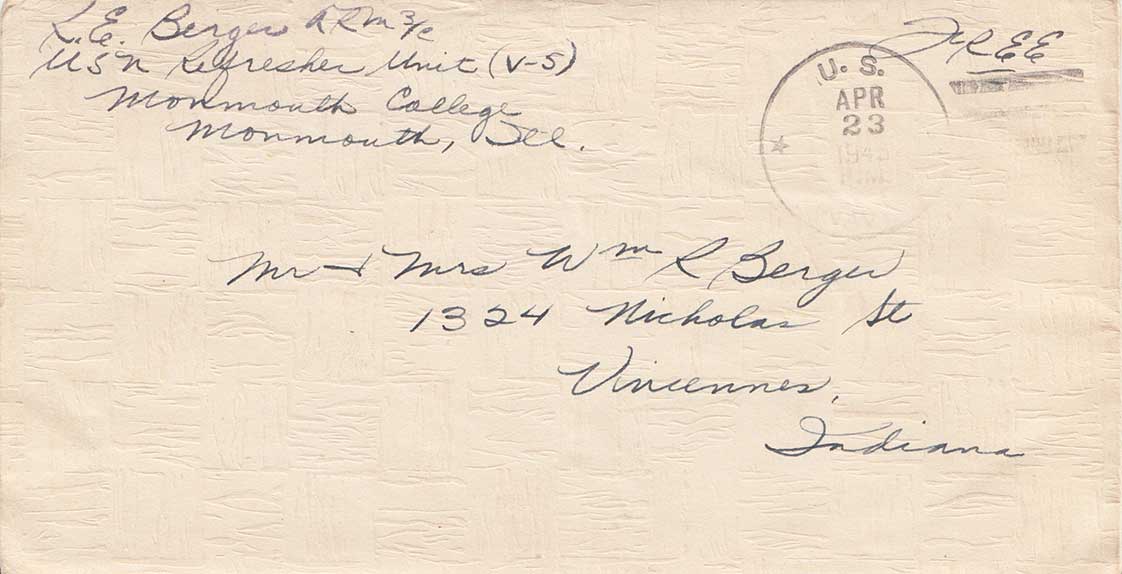 R.E. Berger ARM 3/c
USN Refresher Unit (V-5)
Monmouth College
Monmouth, Ill.
FREE
U. S.
APR
23
Mr & Mrs Wm R Berger
1324 Nicholas St
Vincennes,
Indiana